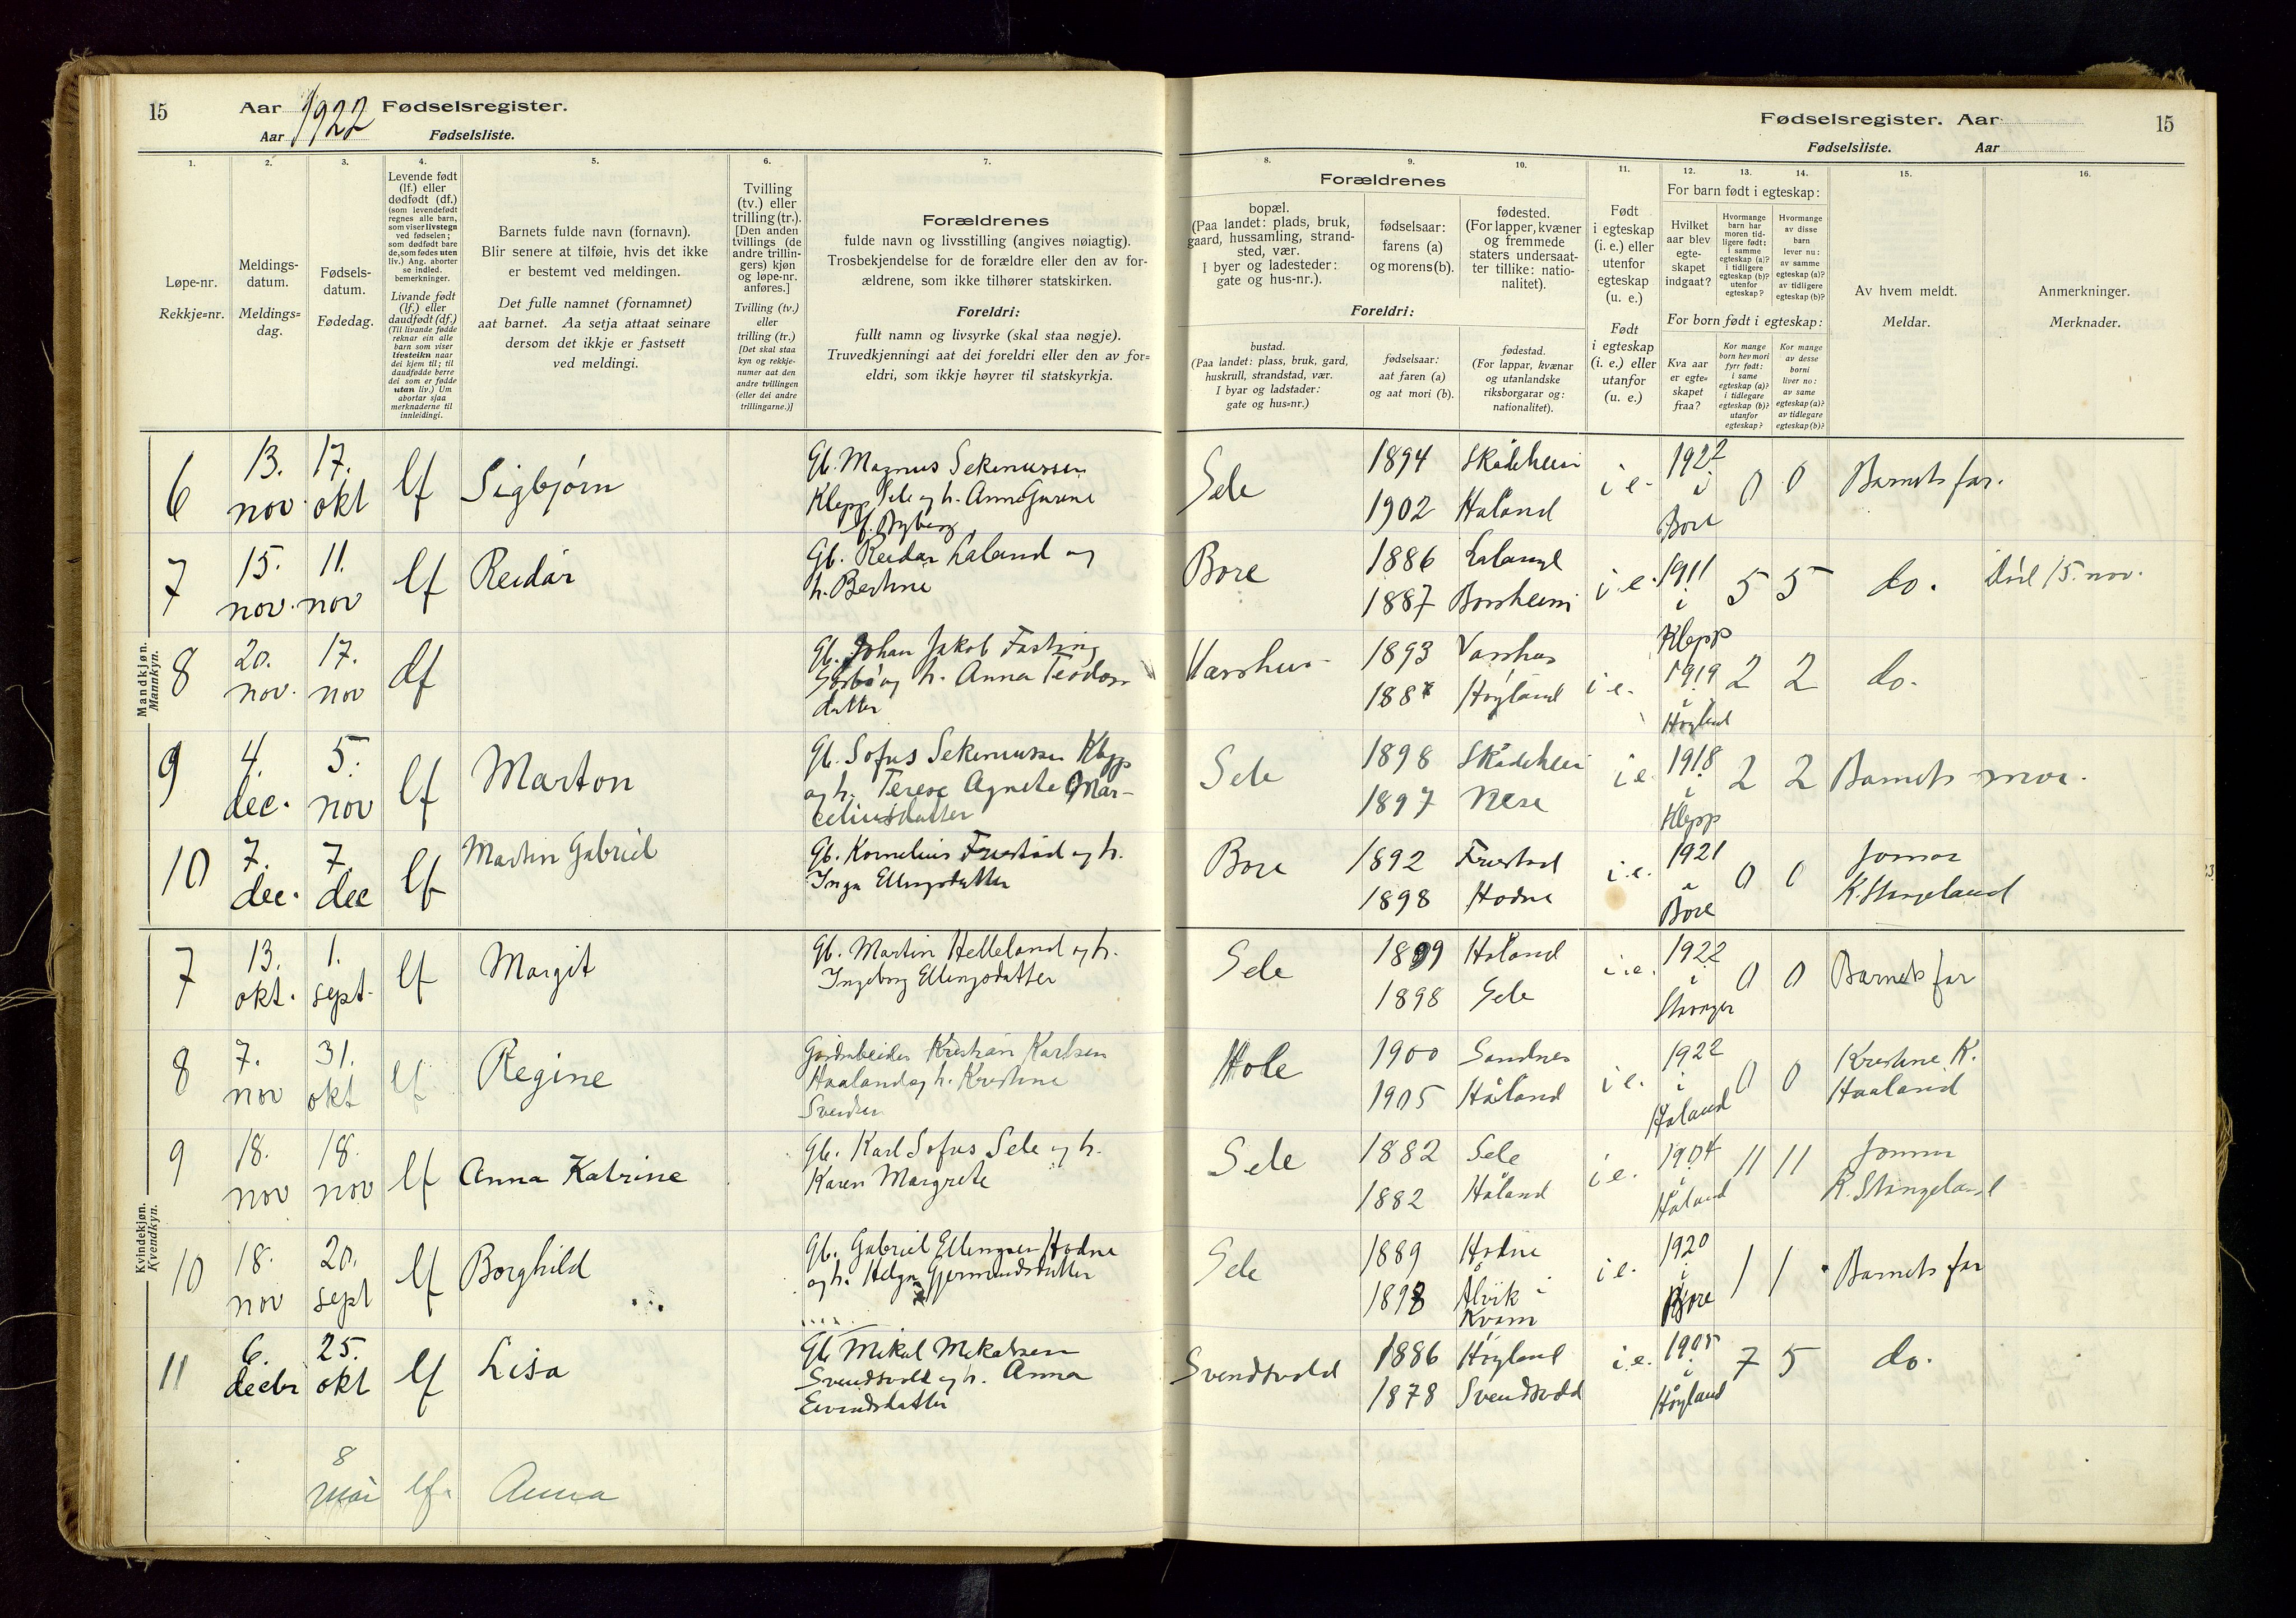 15
Aar 1922 Fødselsregister.
Aar Fødselsliste.
1.
2.
3.
4.
5.
6.
7.
Løpe-nr.
Rekkje=nr.
Meldings-
datum.
Meldings=
dag.
Fødsels-
datum.
Fødedag.
Levende født
(lf.) eller
dødfødt (df.)
(som levendefødt
regnes alle barn,
som viser livstegn
ved fødselen;
som dødfødt bare
de, som fødes uten
liv.) Ang. aborter
se indled.
bemerkninger.
Livande født
(lf.) eller
daudfødt (df.)
(Til livande fødde
reknar ein alle
barn som viser
livsteikn naar
dei kjem til; til
daudfødde berre
dei som er fødde
utan liv.) Um
abortar sjaa
merknaderne til
innleidingi.
Barnets fulde navn (fornavn).
Blir senere at tilføie, hvis det ikke
er bestemt ved meldingen.
Det fulle namnet (fornamnet)
aat barnet. Aa setja attaat seinare
dersom det ikkje er fastsett
ved meldingi.
Tvilling
(tv.) eller
trilling (tr.).
[Den anden
tvillings (de
andre trillin-
gers) kjøn
og løpe-nr.
anføres.]
Tvilling (tv.)
eller
trilling (tr.)
[Det skal staa
kyn og rekkje-
numer aat den
andre tvillingen
(eller dei andre
trillingarne.)]
Forældrenes
fulde navn og livsstilling (angives nøiagtig).
Trosbekjendelse for de forældre eller den av for-
ældrene, som ikke tilhører statskirken.
Foreldri:
fullt namn og livsyrke (skal staa nøgje).
Truvedkjenningi aat dei foreldri eller den av for=
eldri, som ikkje høyrer til statskyrkja.
Mandkjøn.
Mannkyn.
6
13.
nov.
17.
okt
lf
Sigbjørn
Gb. Magnus Sekemussen
Klepp Sele og h. Anna Gurine
f. Nyberg
7
15.
nov.
11.
nov
lf
Reidar
Gb. Reidar Laland og
h. Bertine
8
20.
nov.
17.
nov
df
Gb. Johan Jakob Fasting
og h. Anna Teodors
datter
9
4.
dec.
5.
nov
lf
Marton
Gb. Sofus Sekemussen Klepp
og h. Terese Agnete Mar-
celiusdatter
10
7.
dec.
7.
dec
lf
Martin Gabriel
Gb. Kornelius Friestad og h.
Inga Ellingsdatter
Kvindekjøn.
Kvendkyn.
7
13.
okt.
1.
sept.
lf
Margit
Gb. Martin Helleland og h.
Ingeborg Ellingsdatter
8
7.
nov
31.
okt
lf
Regine
Gårdarbeider Kristian Karlsen
Haaland og h. Kristine
Svendsen
9
18.
nov
18.
nov
lf
Anna Katrine
Gb. Karl Sofus Sele og h.
Karen Margrete
10
18.
nov
20.
sept
lf
Borghild
Gb. Gabriel Ellingsen Hodne
og h. Helga Gjermundsdatter
11
6.
decbr
25.
okt
lf
Lisa
Gb. Mikal Mikalsen
Svendsvold og h. Anna
Eivindsdatter
8
mai
lf.
Anna
Fødselsregister. Aar
15
Fødselsliste. Aar
8.
9.
10.
11.
12.
13.
14.
15.
16.
Forældrenes
bopæl.
(Paa landet: plads, bruk,
gaard, hussamling, strand-
sted, vær.
I byer og ladesteder:
gate og hus-nr.).
fødselsaar:
farens (a)
og morens (b).
fødested.
(For lapper, kvæner
og fremmede
staters undersaat-
ter tillike: natio-
nalitet).
Foreldri:
bustad.
(Paa landet: plass, bruk, gard,
huskrull, strandstad, vær.
I byar og ladstader:
gate og hus-nr.)
fødselsaar:
aat faren (a)
og aat mori (b).
fødestad.
(For lappar, kvænar
og utanlandske
riksborgarar og:
nationalitet).
Født
i egteskap
(i. e.) eller
utenfor
egteskap
(u. e.)
Født
i egteskap
(i. e.) eller
utanfor
(u. e.)
For barn født i egteskap:
Hvilket
aar blev
egte-
skapet
indgaat?
Hvormange
barn har
moren tid-
ligere født:
i samme
egteskap (a)?
i tidligere
egteskap (b)?
utenfor
egteskap?
Hvormange
av disse
barn
lever nu:
av samme
egteskap (a)?
av tidligere
egteskap (b)?
For born født i egteskap:
Kva aar
er egte-
skapet
fraa?
Kor mange
born hev mori
fyrr født:
i same
egteskap (a)?
i tidlegare
egteskap (b)?
utanfor
egteskap?
Kor mange
av desse
borni
liver no:
av same
egteskap (a)?
av tidlegare
egteskap (b)?
Av hvem meldt.
Meldar.
Anmerkninger.
Merknader.
Sele
1894
1902
Skådeheim
Håland
i e.
1922
i
Bore
0
0
Barnets far.
Bore
1886
1887
Laland
Borsheim
i e.
1911
i
Klepp
5
5
do.
Død 15. nov.
Varshus
1893
1887
Varshus
Høyland
i e.
1919
i
Høyland
2
2
do.
Sele
1898
1897
Skådeheim
Nese
i e.
1918
i
Klepp
2
2
Barnets mor.
Bore
1892
1898
Friestad
Hodne
i.e.
1921
i
Bore
0
0
Jomor
K. Stangeland
Sele
1899
1898
Håland
Sele
i.e.
1922
i
Stavanger
0
0
Barnets far
Hole
1900
1905
Sandnes
Håland
i e.
1922
i
Håland
0
0
Kristine K.
Haaland
Sele
1882
1882
Sele
Håland
i e.
1904
i
Håland
11
11
Jomor
K. Stangeland
Sele
1889
1898
Hodne
Ålvik i
Kvam
i e.
1920
i
Bore
1
1
Barnets far
Svendsvold
1886
1878
Høyland
Svendsvold
i e.
1905
i
Høyland
7
5
do.